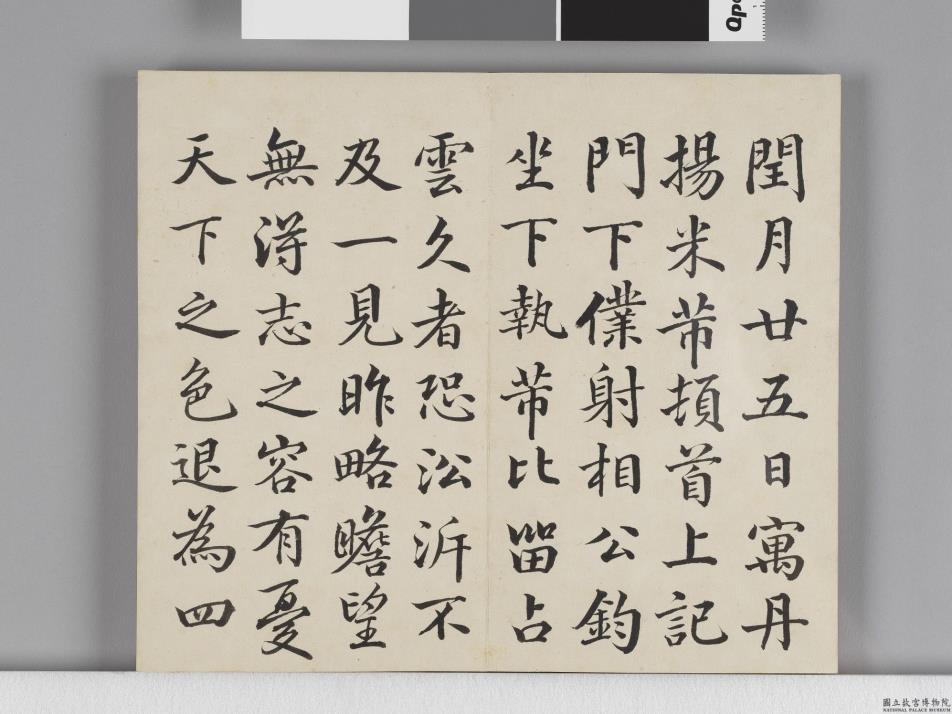 閏月廿五日寓丹
揚米芾頓首上記
門下僕射相公鈞
坐下執芾比留占
雲久者恐沿泝不
及一見昨略瞻望
無得志之容有憂
天下之色退為四
國立故宮博物院
NATIONAL PALACE MUSEUM